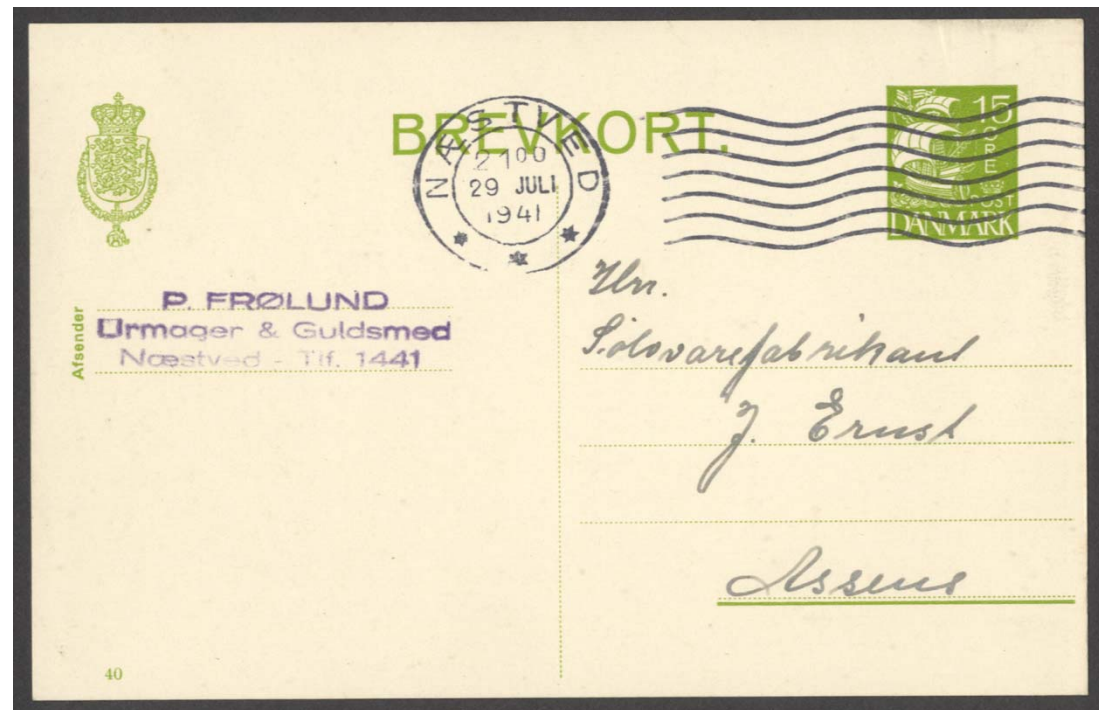 BREVKORT.
NÆSTVED
2100
29 JULI
1941
15
ØRE
POST
DANMARK
Afsender
P. FRØLUND
Urmager & Guldsmed
Næstved - Tlf. 1441
Hrr.
Sølvvarefabrikant
J. Ernst
Assens
40